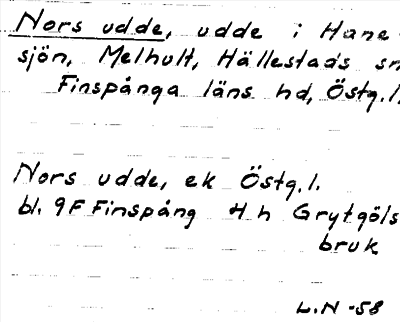 Nors udde, udde i Hane-
sjön, Melhult, Hällestads sn
Finspånga läns hd, Östg.l.
Nors udde, ek Östg.l.
bl. 9F Finspång 4h Grytgöls
bruk
L.N -58